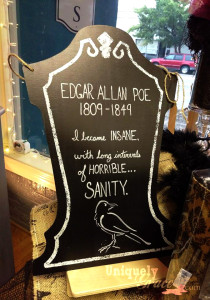 S
EDGAR ALLAN POE
1809-1849
I became INSANE,
with long intervals
of HORRIBLE...
SANITY.
Uniquely
Grace.com